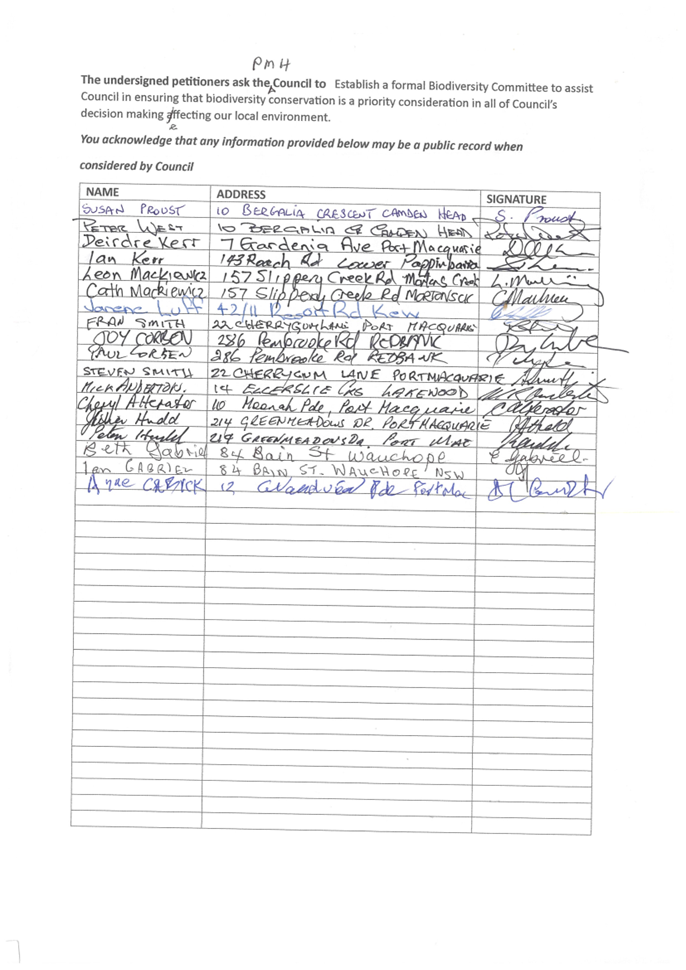 PMH
The undersigned petitioners ask the Council to Establish a formal Biodiversity Committee to assist
Council in ensuring that biodiversity conservation is a priority consideration in all of Council's
decision making affecting our local environment.
You acknowledge that any information provided below may be a public record when
considered by Council
NAME ADDRESS SIGNATURE
SUSAN PROUST 10 BERGALIA CRESCENT CAMDEN HEAD S. Proust
PETER WEST 10 BERGALIA CR CAMDEN HEAD
Deirdre Kerr 7 Gardenia Ave Port Macquarie
Ian Kerr Rd Lower Pappinbarra
Leon Mackiewicz 157 Slippery Creek Rd Mortons Creek
Cath Mackiewicz 157 Slippery Creek Rd MORTONSCK
Luff 42/11 Resort Rd Kew
FRAN SMITH 22 CHERRYGUM LANE PORT MACQUARIE
JOY CORBEN 286 Pembrooke Rd REDBANK
PAUL CORBEN 286 Pembrooke Rd REDBANK
STEVEN SMITH 22 CHERRYGUM LANE PORTMACQUARIE
MICK ANDERTON. 14 ELLERSLIE CRS LAKEWOOD
Cheryl 10 Pde, Port Macquarie
Hudd 214 GREENMEADOWS DR PORT MACQUARIE
Peter 214 GREENMEADOWS DR. PORT MAC
Beth Gabriel 84 Bain St Wauchope E Gabriel
Ian GABRIEL 84 BAIN ST. WAUCHOPE NSW
12 Pde Port Mac